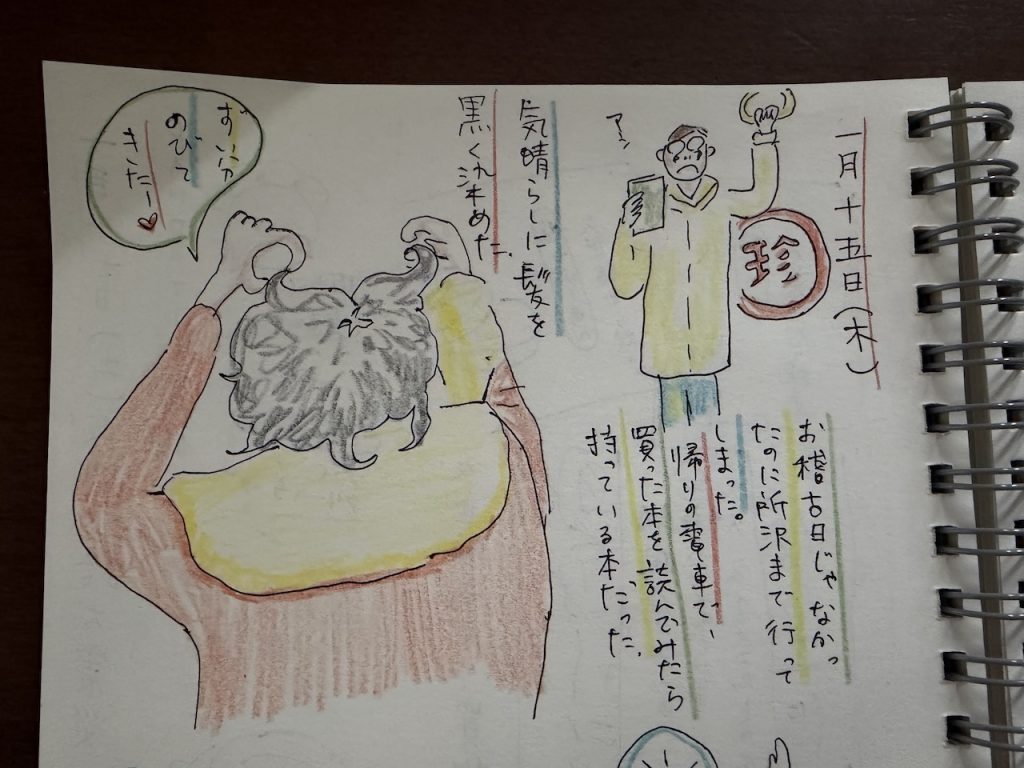 一月十五日(木)
珍
アーン
お稽古日じゃなかっ
たのに所沢まで行って
しまった。
帰りの電車で、
買った本を読んでみたら
持っている本だった。
気晴らしに髪を
黒く染めた。
ずいぶん
のびて
きたー♥